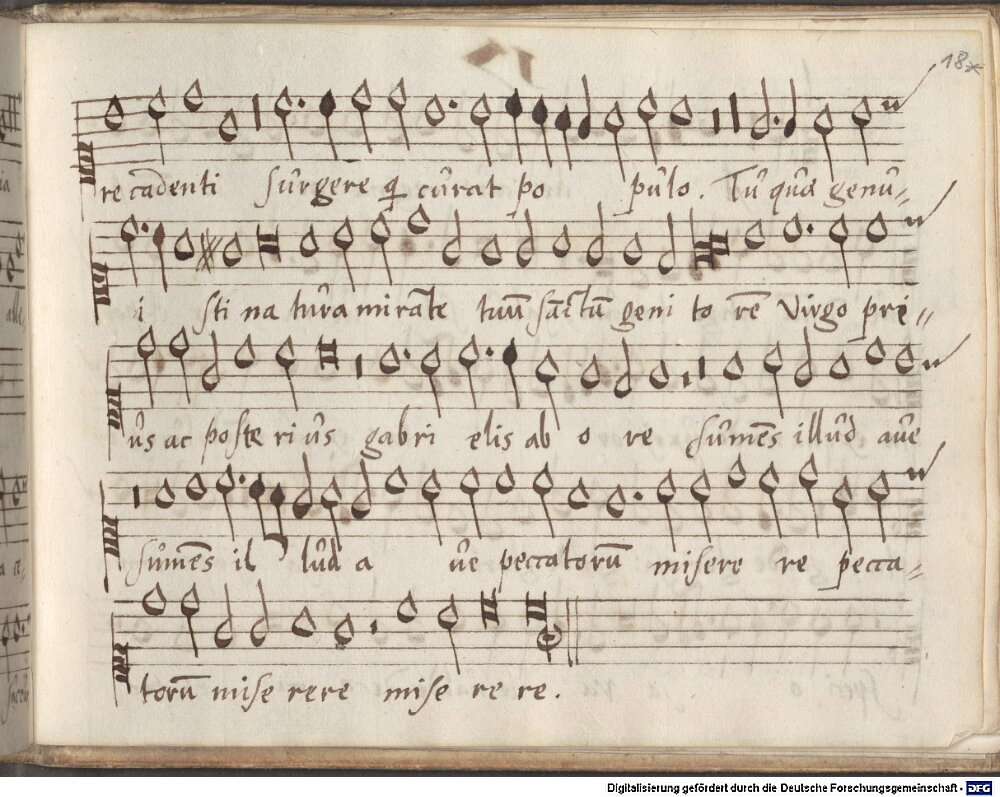 18
re cadenti sůrgere q̃ cůrat po půlo. Tů quæ genů-
i sti na tůra mirāte tuū sāctū geni to rē Virgo pri-
ůs ac poste ri ůs gabri elis ab o re sůmēs illůd aůe
sůmēs il lůd a ůe peccatorū misere re pecca-
torū mise rere mise re re.
Digitalisierung gefördert durch die Deutsche Forschungsgemeinschaft - DFG